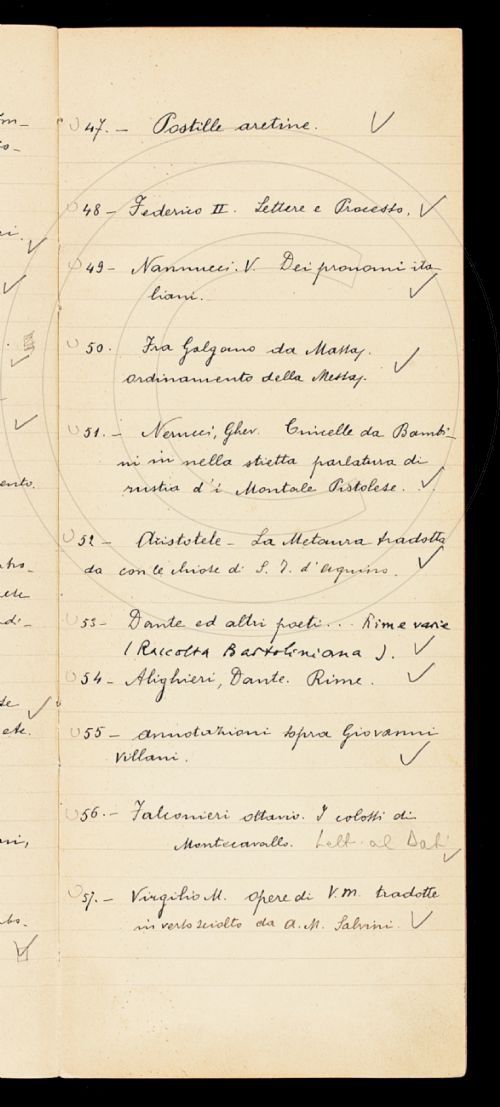 47. – Postille aretine.
48 – Federico II. Lettere e Processo.
49 – Nannucci. V. Dei pronomi ita-
liani.
50. Fra Galgano da Massa.
ordinamento della Messa.
51. – Nerucci, Gher. Cincelle da Bambi-
ni in nella stietta parlatura di
rustia d'i Montale Pistolese.
52 – Aristotele – La Metaura tradotta
da con le chiose di S. T. d'Aquino.
53 – Dante ed altri poeti... Rime varie
(Raccolta Bartoliniana).
54 – Alighieri, Dante. Rime.
55 – annotazioni sopra Giovanni
Villani.
56. – Falconieri Ottavio. I colossi di
Montecavallo. Lett. al Dati
57. – Virgilio M. Opere di V. M. tradotte
in verso sciolto da A. M. Salvini.